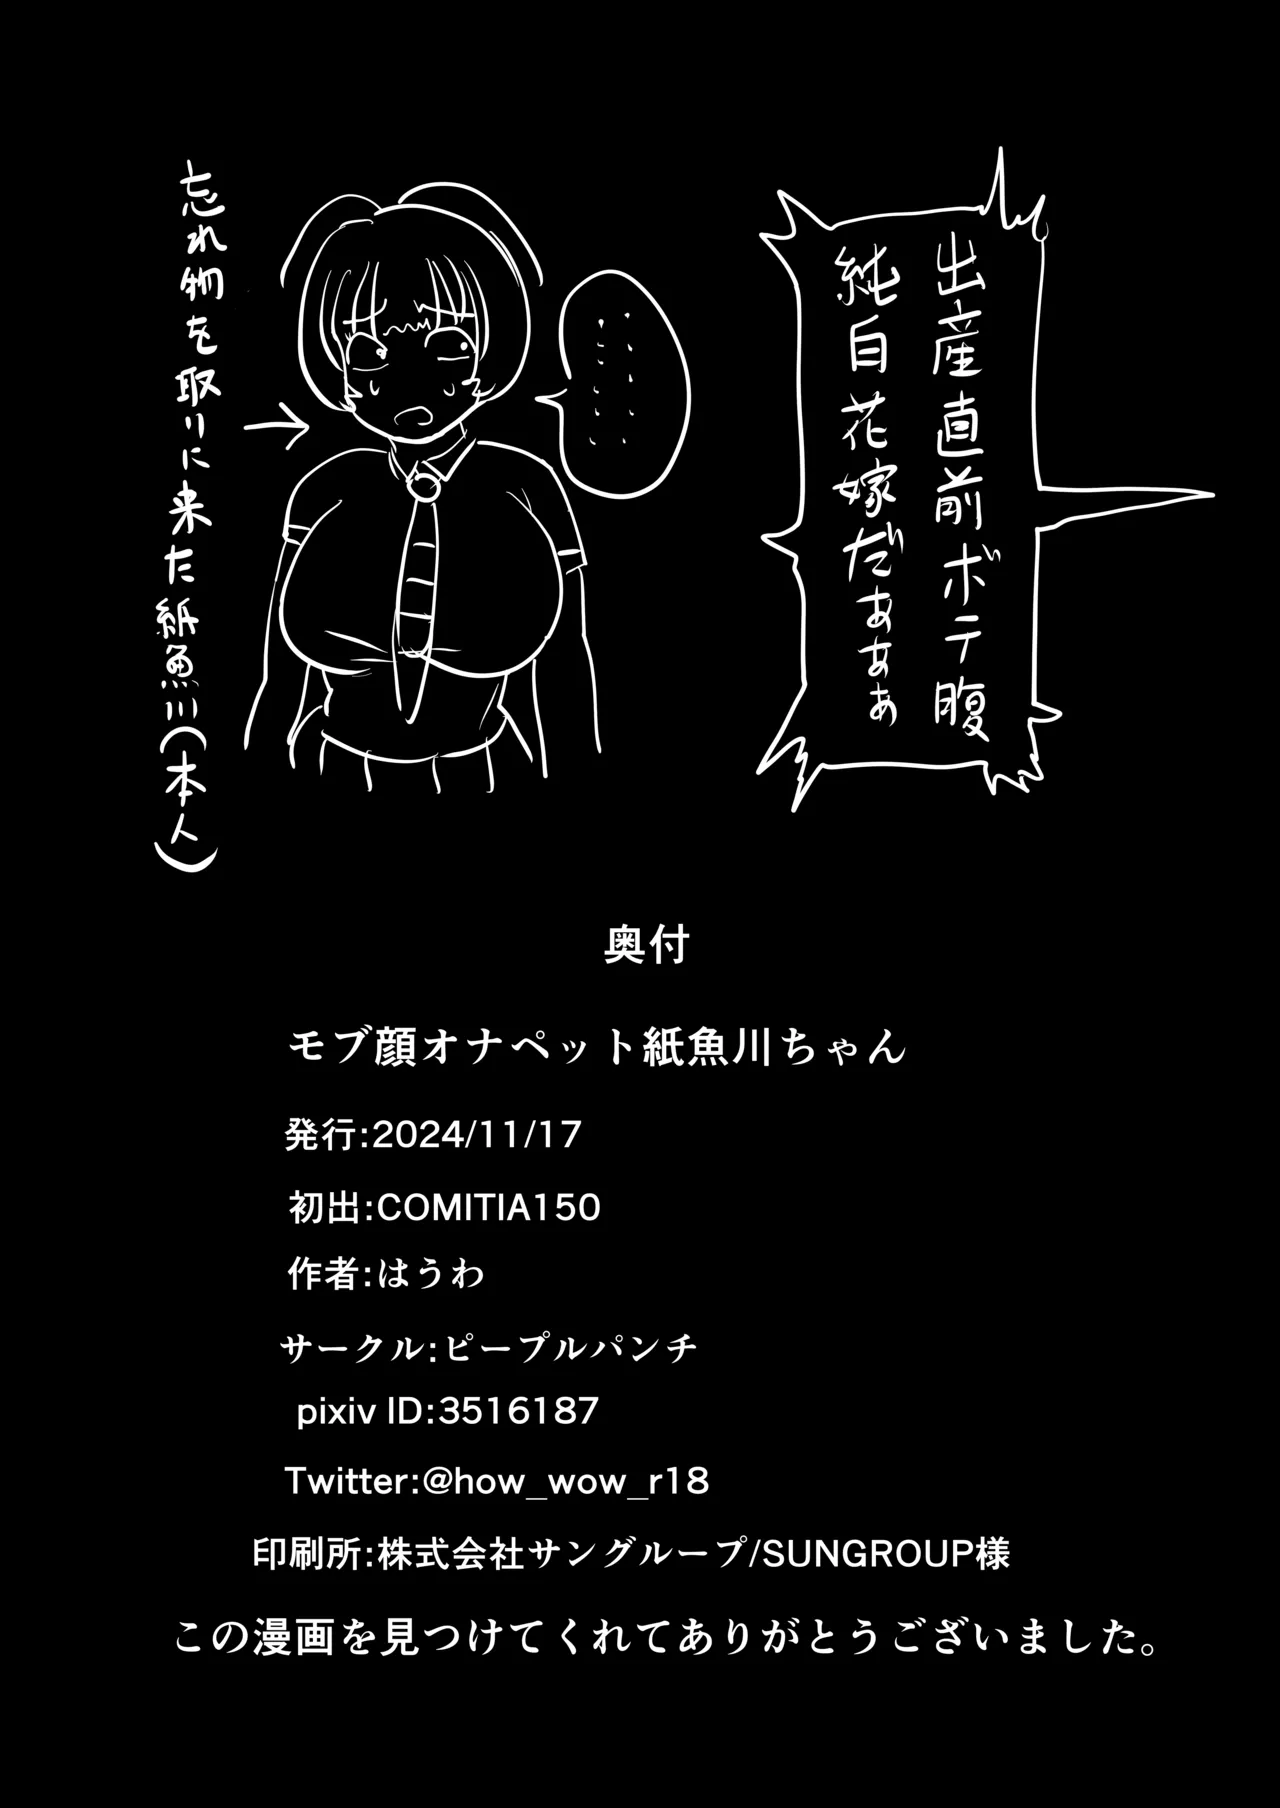 出産直前ボテ腹
純白花嫁だぁぁぁ
忘れ物を取りに来た紙魚川(本人)
奥付
モブ顔オナペット紙魚川ちゃん
発行:2024/11/17
初出:COMITIA150
作者:はうわ
サークル:ピープルパンチ
pixiv ID:3516187
Twitter:@how_wow_r18
印刷所:株式会社サングループ/SUNGROUP様
この漫画を見つけてくれてありがとうございました。